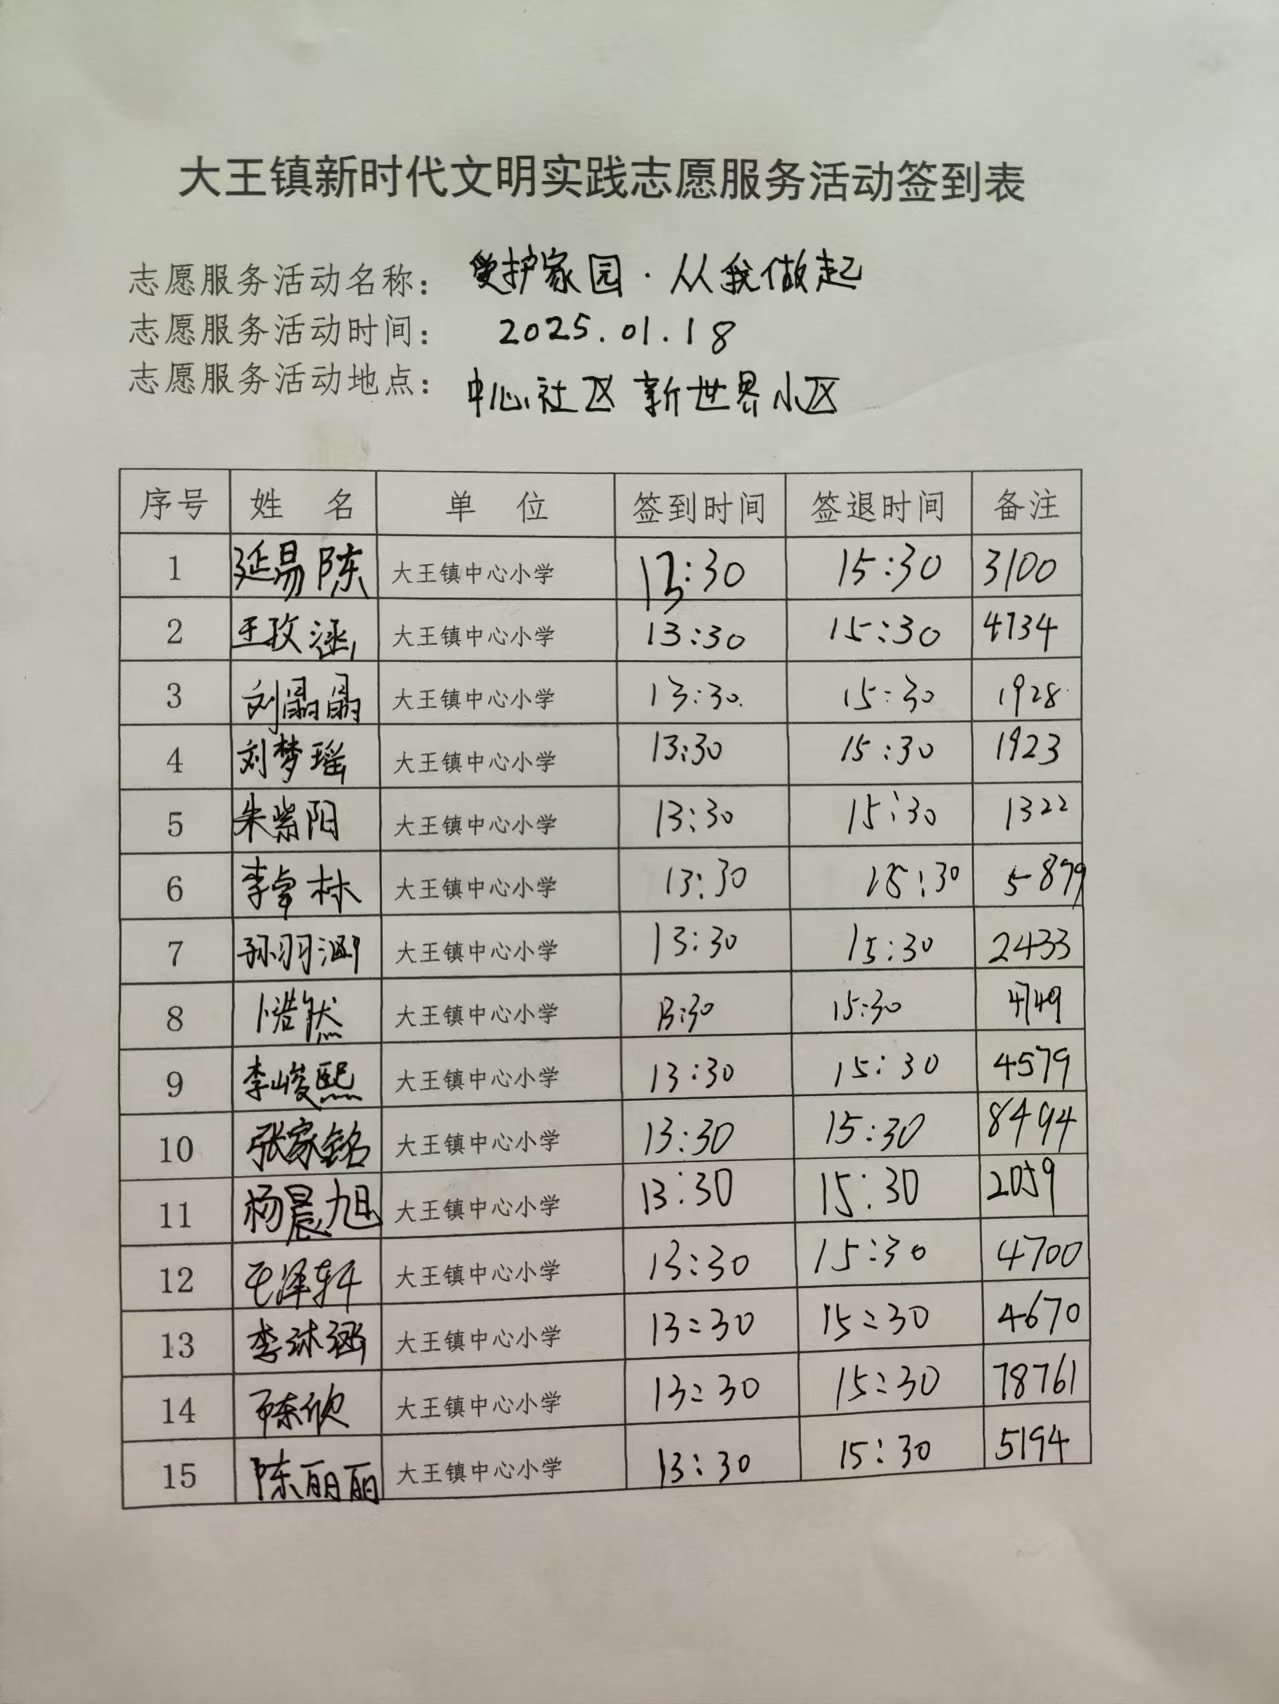 大王镇新时代文明实践志愿服务活动签到表
志愿服务活动名称： 爱护家园·从我做起
志愿服务活动时间： 2025.01.18
志愿服务活动地点： 中心社区新世界小区
序号 姓 名 单 位 签到时间 签退时间 备注
1 延易陈 大王镇中心小学 13:30 15:30 3100
2 王玫涵 大王镇中心小学 13:30 15:30 4734
3 刘晶晶 大王镇中心小学 13:30 15:30 1928
4 刘梦瑶 大王镇中心小学 13:30 15:30 1923
5 朱紫阳 大王镇中心小学 13:30 15:30 1322
6 李卓林 大王镇中心小学 13:30 15:30 5879
7 孙羽涵 大王镇中心小学 13:30 15:30 2433
8 卜浩然 大王镇中心小学 13:30 15:30 4749
9 李峻熙 大王镇中心小学 13:30 15:30 4579
10 张家铭 大王镇中心小学 13:30 15:30 8494
11 杨晨旭 大王镇中心小学 13:30 15:30 2059
12 毛泽轩 大王镇中心小学 13:30 15:30 4700
13 李沐涵 大王镇中心小学 13:30 15:30 4670
14 大王镇中心小学 13:30 15:30 78761
15 陈丽丽 大王镇中心小学 13:30 15:30 5194